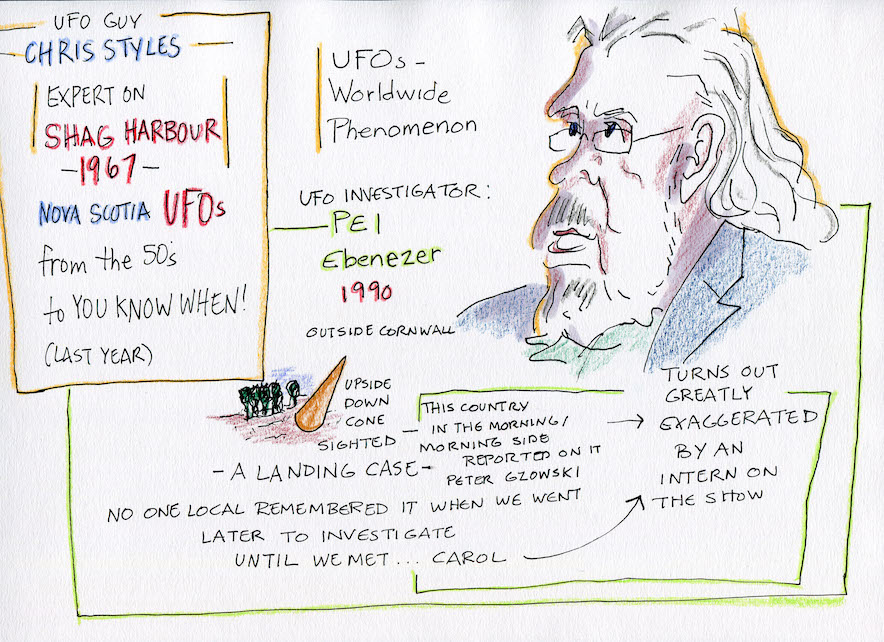 UFO GUY
CHRIS STYLES
EXPERT ON
SHAG HARBOUR
-1967-
NOVA SCOTIA UFOs
from the 50's
to YOU KNOW WHEN!
(LAST YEAR)
UFOs -
Worldwide
Phenomenon
UFO INVESTIGATOR:
PEI
Ebenezer
1990
OUTSIDE CORNWALL
UPSIDE
DOWN
CONE
SIGHTED -
- A LANDING CASE -
THIS COUNTRY
IN THE MORNING/
MORNING SIDE
REPORTED ON IT
PETER GZOWSKI
TURNS OUT
GREATLY
EXAGGERATED
BY AN
INTERN ON
THE SHOW
NO ONE LOCAL REMEMBERED IT WHEN WE WENT
LATER TO INVESTIGATE
UNTIL WE MET... CAROL